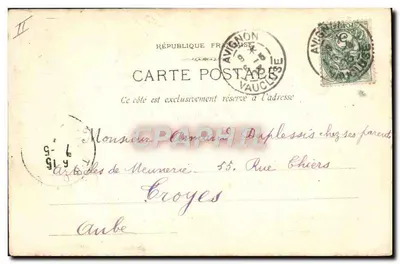 II
RÉPUBLIQUE FRANÇAISE
AVIGNON
VAUCLUSE
AVIGNON
VAUCLUSE
CARTE POSTALE
Ce côté est exclusivement réservé à l'adresse
Monsieur Duplessis chez ses parents
Articles de Meunerie - 55 Rue Thiers
Troyes
Aube